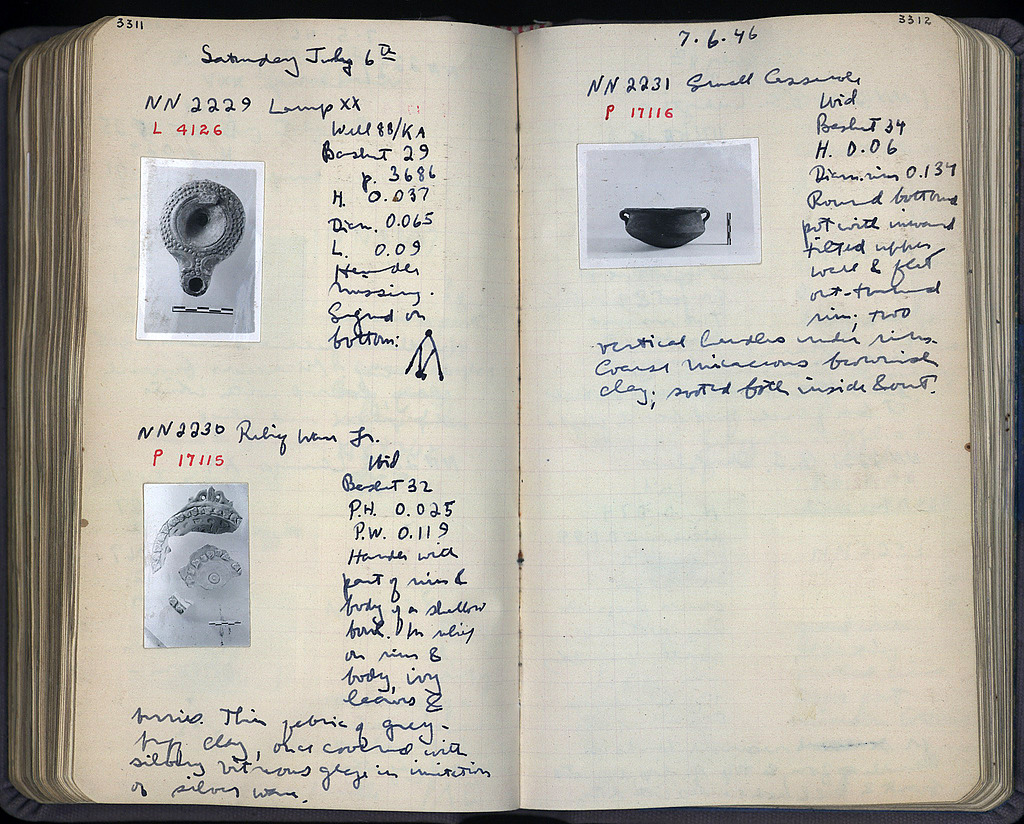 3311
Saturday July 6th
NN 2229 Lamp XX
L 4126
Well 88/KA
Basket 29
p. 3686
H. 0.037
Diam. 0.065
L. 0.09
Handle
missing.
Signed on
bottom:
NN 2230 Relief Ware fr.
P 17115
Ibid
Basket 32
P.H. 0.025
P.W. 0.119
Handle with
part of rim &
body of a shallow
bowl. In relief
on rim &
body, ivy
leaves &
berries. Thin fabric of grey-
buff clay, once covered with
silvery vitreous glaze in imitation
of silver ware.
3312
7.6.46
NN 2231 Small Casserole
P 17116
Ibid
Basket 34
H. 0.06
Diam. rim 0.134
Round bottomed
pot with inward
tilted upper
wall & flat
out-turned
rim; two
vertical handles under rim.
Coarse micaceous brownish
clay; sooted both inside & out.